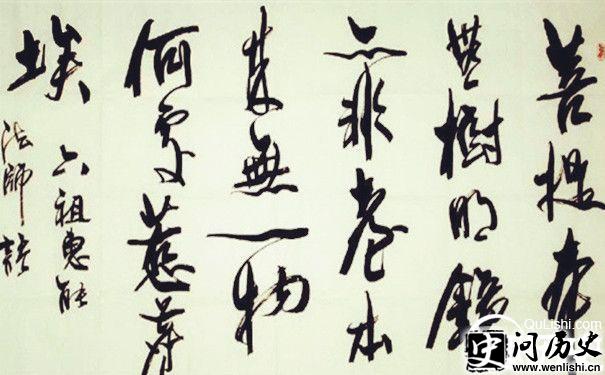 菩提本
無樹明鏡
亦非臺本
來無一物
何處惹塵
埃
六祖惠能
法師語
QuLishi.com
问历史
www.wenlishi.cn